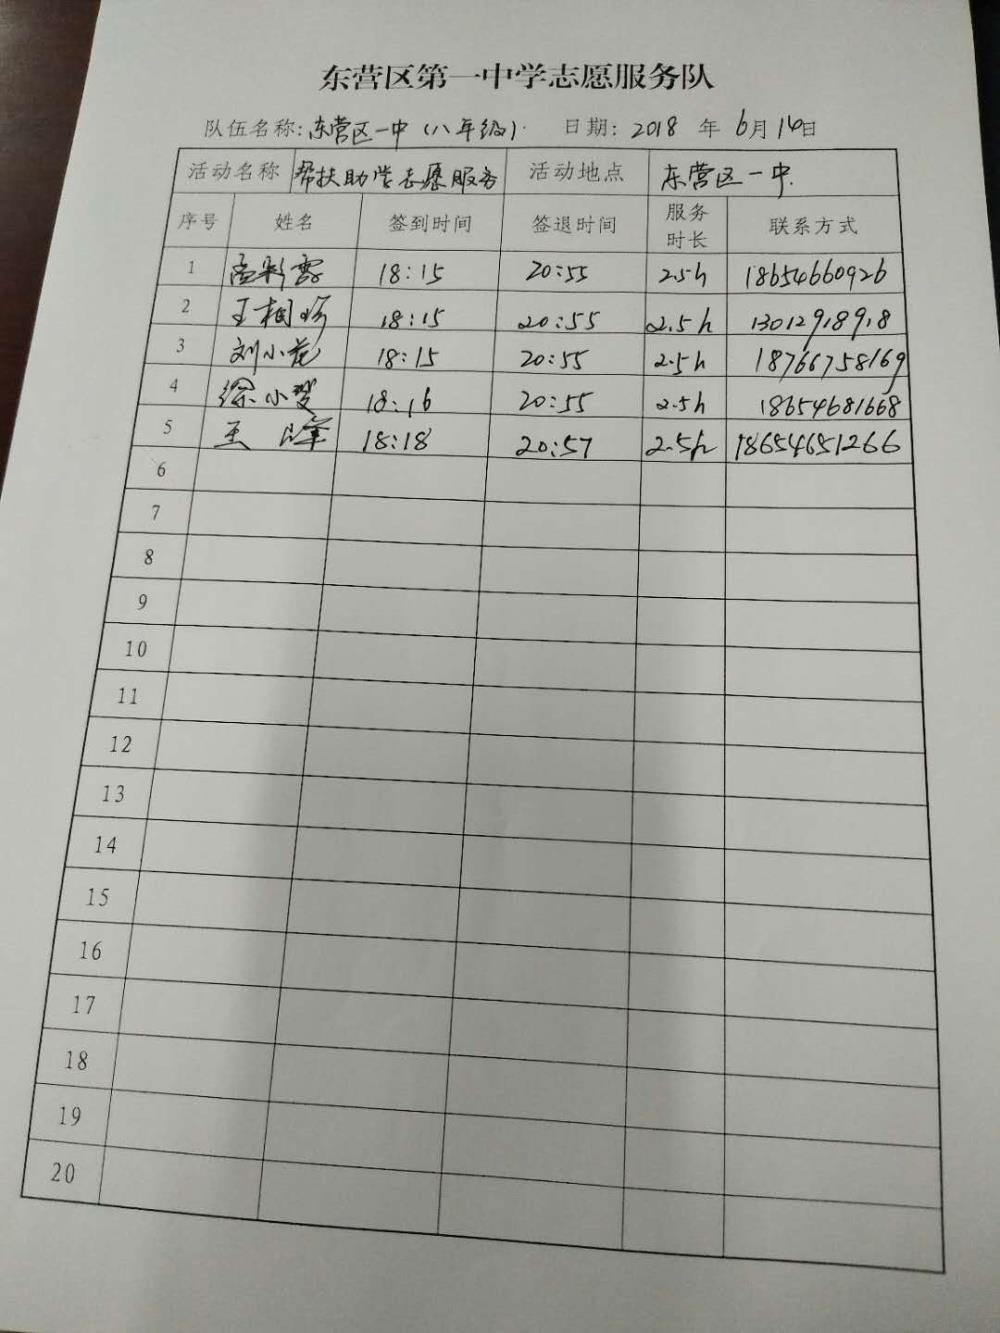 东营区第一中学志愿服务队
队伍名称: 东营区一中(八年级). 日期: 2018 年 6月14日
活动名称 帮扶助学志愿服务 活动地点 东营区一中.
序号 姓名 签到时间 签退时间 服务时长 联系方式
1 孟彩霞 18:15 20:55 2.5h 18654660926
2 王相 18:15 20:55 2.5h 13012918918
3 刘小花 18:15 20:55 2.5h 18766758169
4 徐小 18:16 20:55 2.5h 18654681668
5 王 18:18 20:57 2.5h 18654651266
6
7
8
9
10
11
12
13
14
15
16
17
18
19
20